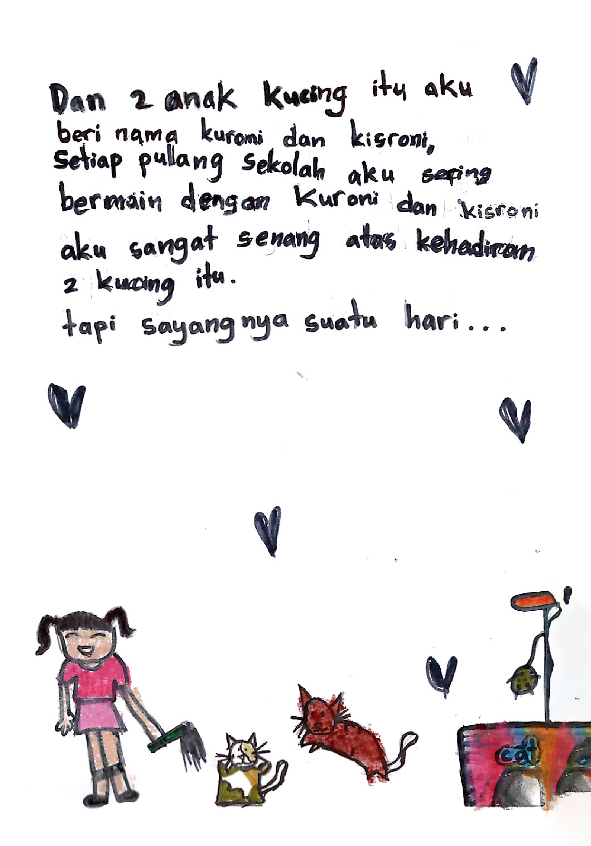 Dan 2 anak kucing itu aku
beri nama kuromi dan kisroni,
Setiap pulang sekolah aku sering
bermain dengan Kuroni dan kisroni
aku sangat senang atas kehadiran
2 kucing itu.
tapi sayang nya suatu hari...
cat